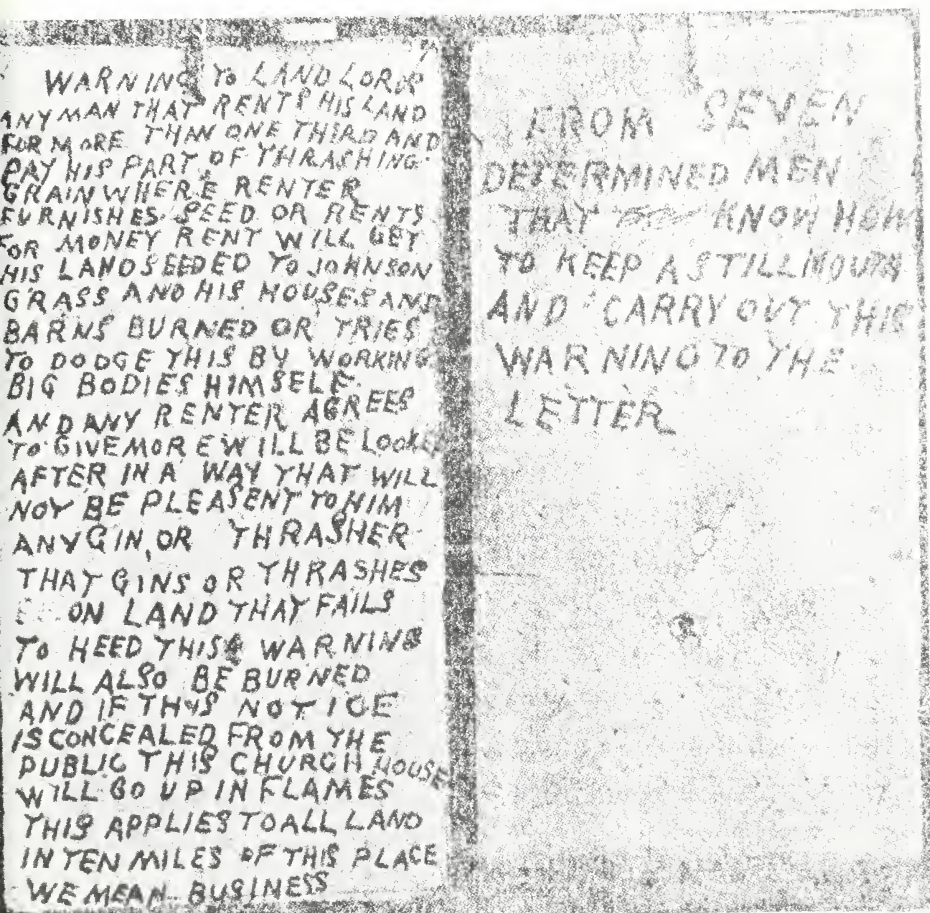 WARNING TO LAND LORDS
ANYMAN THAT RENTS HIS LAND
FOR MORE THAN ONE THIRD AND
PAY HIS PART OF THRASHING
GRAIN WHERE RENTER
FURNISHES SEED OR RENTS
FOR MONEY RENT WILL GET
HIS LAND SEEDED TO JOHNSON
GRASS AND HIS HOUSES AND
BARNS BURNED OR TRIES
TO DODGE THIS BY WORKING
BIG BODIES HIMSELF.
AND ANY RENTER AGREES
TO GIVE MORE WILL BE LOOKED
AFTER IN A WAY THAT WILL
NOT BE PLEASENT TO HIM
ANY GIN, OR THRASHER
THAT GINS OR THRASHES
ON LAND THAT FAILS
TO HEED THIS WARNING
WILL ALSO BE BURNED
AND IF THIS NOTICE
IS CONCEALED FROM THE
PUBLIC THIS CHURCH HOUSE
WILL GO UP IN FLAMES
THIS APPLIES TO ALL LAND
IN TEN MILES OF THIS PLACE
WE MEAN BUSINESS
FROM SEVEN
DETERMINED MEN
THAT KNOW HOW
TO KEEP A STILL MOUTH
AND CARRY OUT THIS
WARNING TO THE
LETTER